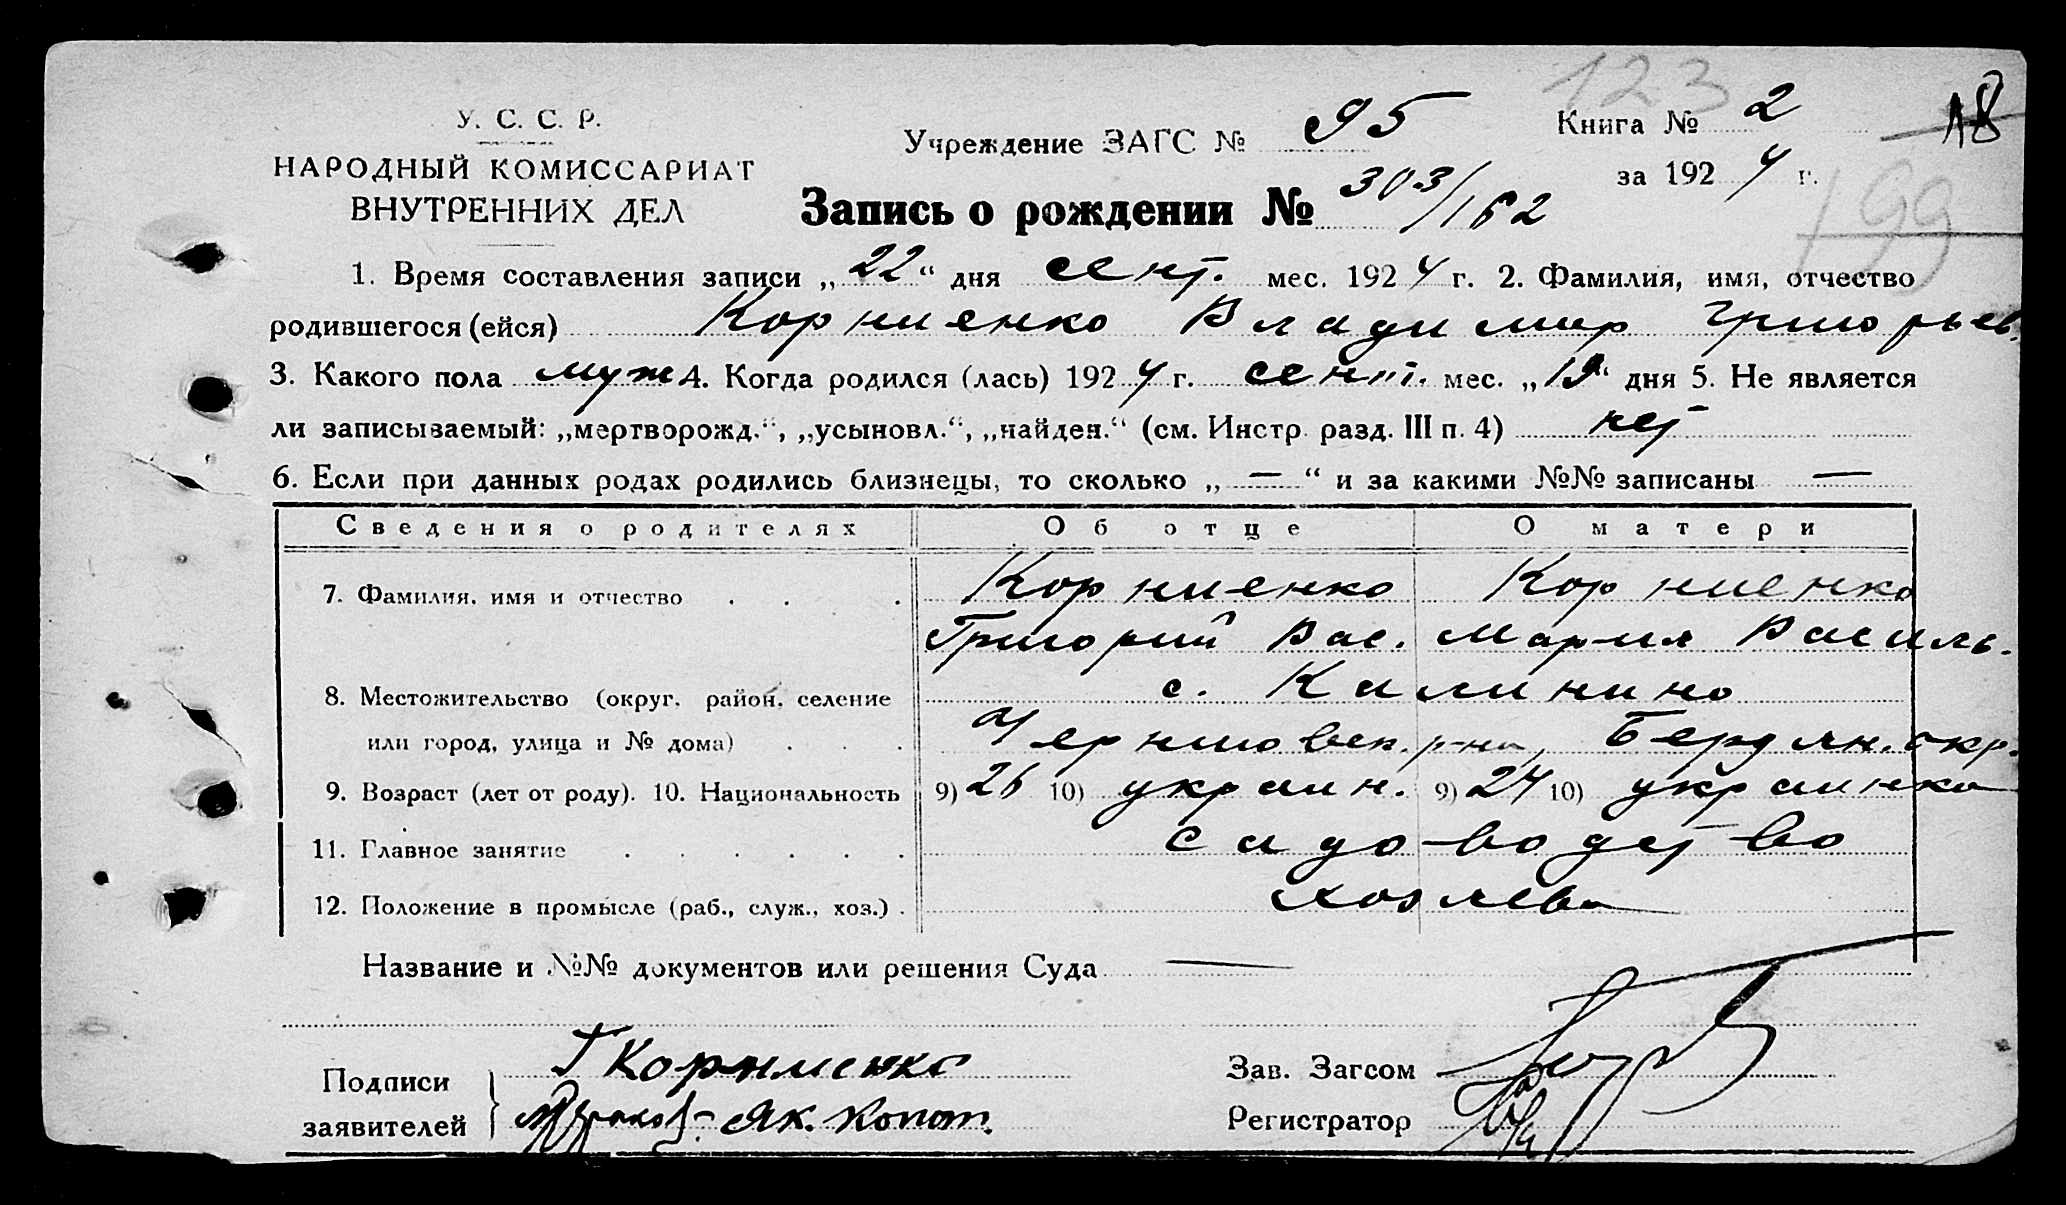 123
У. С. С. Р.
НАРОДНЫЙ КОМИССАРИАТ
ВНУТРЕННИХ ДЕЛ
Учреждение ЗАГС № 95
Книга № 2
18
за 1924 г.
199
Запись о рождении № 303/162
1. Время составления записи „22“ дня сент. мес. 1924 г. 2. Фамилия, имя, отчество
родившегося (ейся) Корниенко Владимир Григорьев.
3. Какого пола муж 4. Когда родился (лась) 1924 г. сент. мес. „19“ дня 5. Не является
ли записываемый: „мертворожд.“, „усыновл.“, „найден.“ (см. Инстр. разд. III п. 4) нет
6. Если при данных родах родились близнецы, то сколько „—“ и за какими №№ записаны —
Сведения о родителях Об отце О матери
7. Фамилия, имя и отчество Корниенко Корниенко
Григорий Вас. Мария Василь.
8. Местожительство (округ, район, селение с. Калинино
или город, улица и № дома) Черниговск. р-на, Бердян. окр.
9. Возраст (лет от роду). 10. Национальность 9) 26 10) украин. 9) 24 10) украинка
11. Главное занятие садоводство
12. Положение в промысле (раб., служ., хоз.) хозяева
Название и №№ документов или решения Суда —
Подписи заявителей
Г Корниенко
Як. Копот.
Зав. Загсом
Регистратор